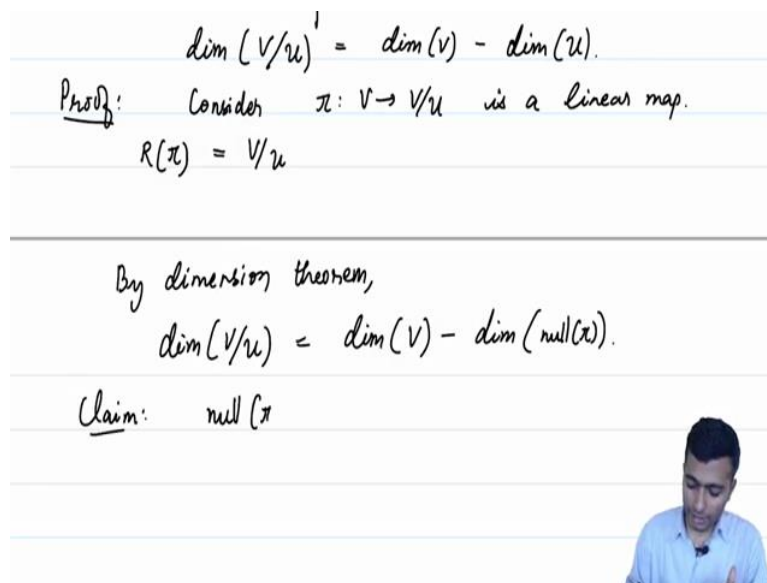 dim (V/U) = dim(V) - dim(U).
Proof: Consider π: V → V/U is a linear map.
R(π) = V/U
By dimension theorem,
dim(V/U) = dim(V) - dim(null(π)).
Claim: null (π